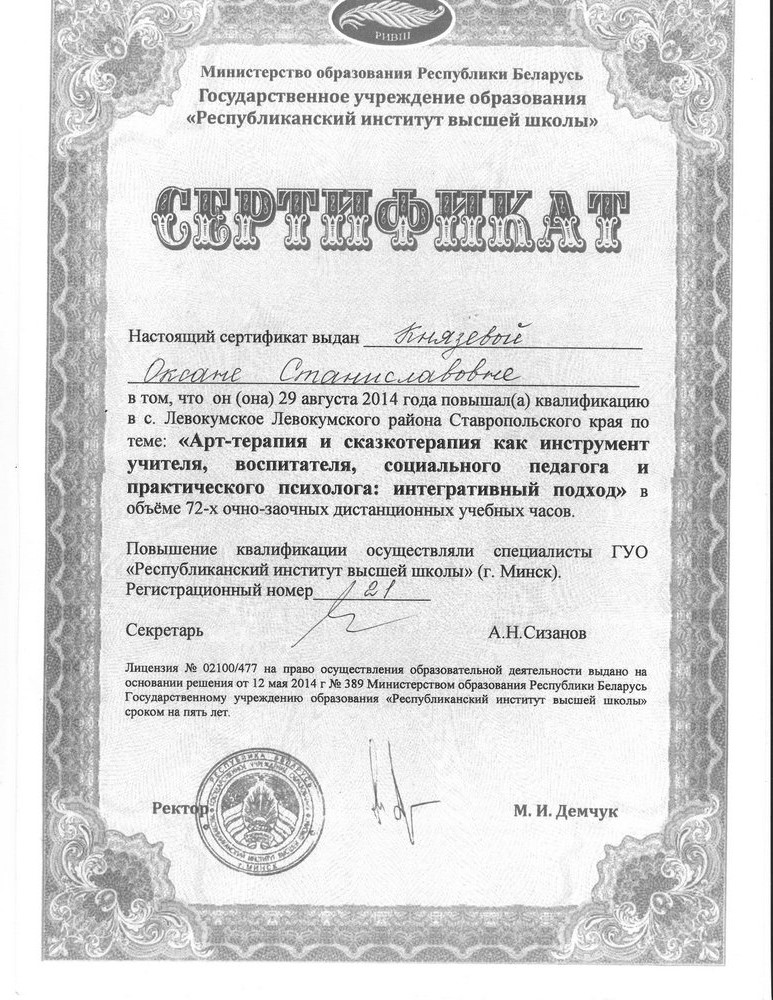 РИВШ
Министерство образования Республики Беларусь
Государственное учреждение образования
«Республиканский институт высшей школы»
СЕРТИФИКАТ
Настоящий сертификат выдан Князевой
Оксане Станиславовне
в том, что он (она) 29 августа 2014 года повышал(а) квалификацию
в с. Левокумское Левокумского района Ставропольского края по
теме: «Арт-терапия и сказкотерапия как инструмент
учителя, воспитателя, социального педагога и
практического психолога: интегративный подход» в
объёме 72-х очно-заочных дистанционных учебных часов.
Повышение квалификации осуществляли специалисты ГУО
«Республиканский институт высшей школы» (г. Минск).
Регистрационный номер 21
Секретарь А.Н.Сизанов
Лицензия № 02100/477 на право осуществления образовательной деятельности выдано на
основании решения от 12 мая 2014 г № 389 Министерством образования Республики Беларусь
Государственному учреждению образования «Республиканский институт высшей школы»
сроком на пять лет.
РЕСПУБЛИКА БЕЛАРУСЬ
г. МИНСК
Ректор М. И. Демчук